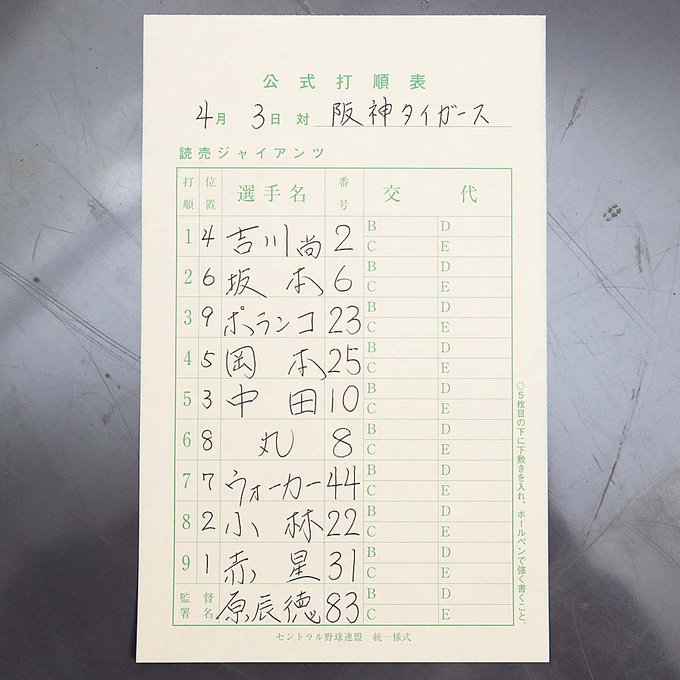 公式打順表
4月 3日 対 阪神タイガース
読売ジャイアンツ
打順 位置 選手名 番号 交代
1 4 吉川尚 2 B D C E
2 6 坂本 6 B D C E
3 9 ポランコ 23 B D C E
4 5 岡本 25 B D C E
5 3 中田 10 B D C E
6 8 丸 8 B D C E
7 7 ウォーカー 44 B D C E
8 2 小林 22 B D C E
9 1 赤星 31 B D C E
監督署名 原辰徳 83 B D C E
セントラル野球連盟 統一様式
◎5枚目の下に下敷きを入れ、ボールペンで強く書くこと。